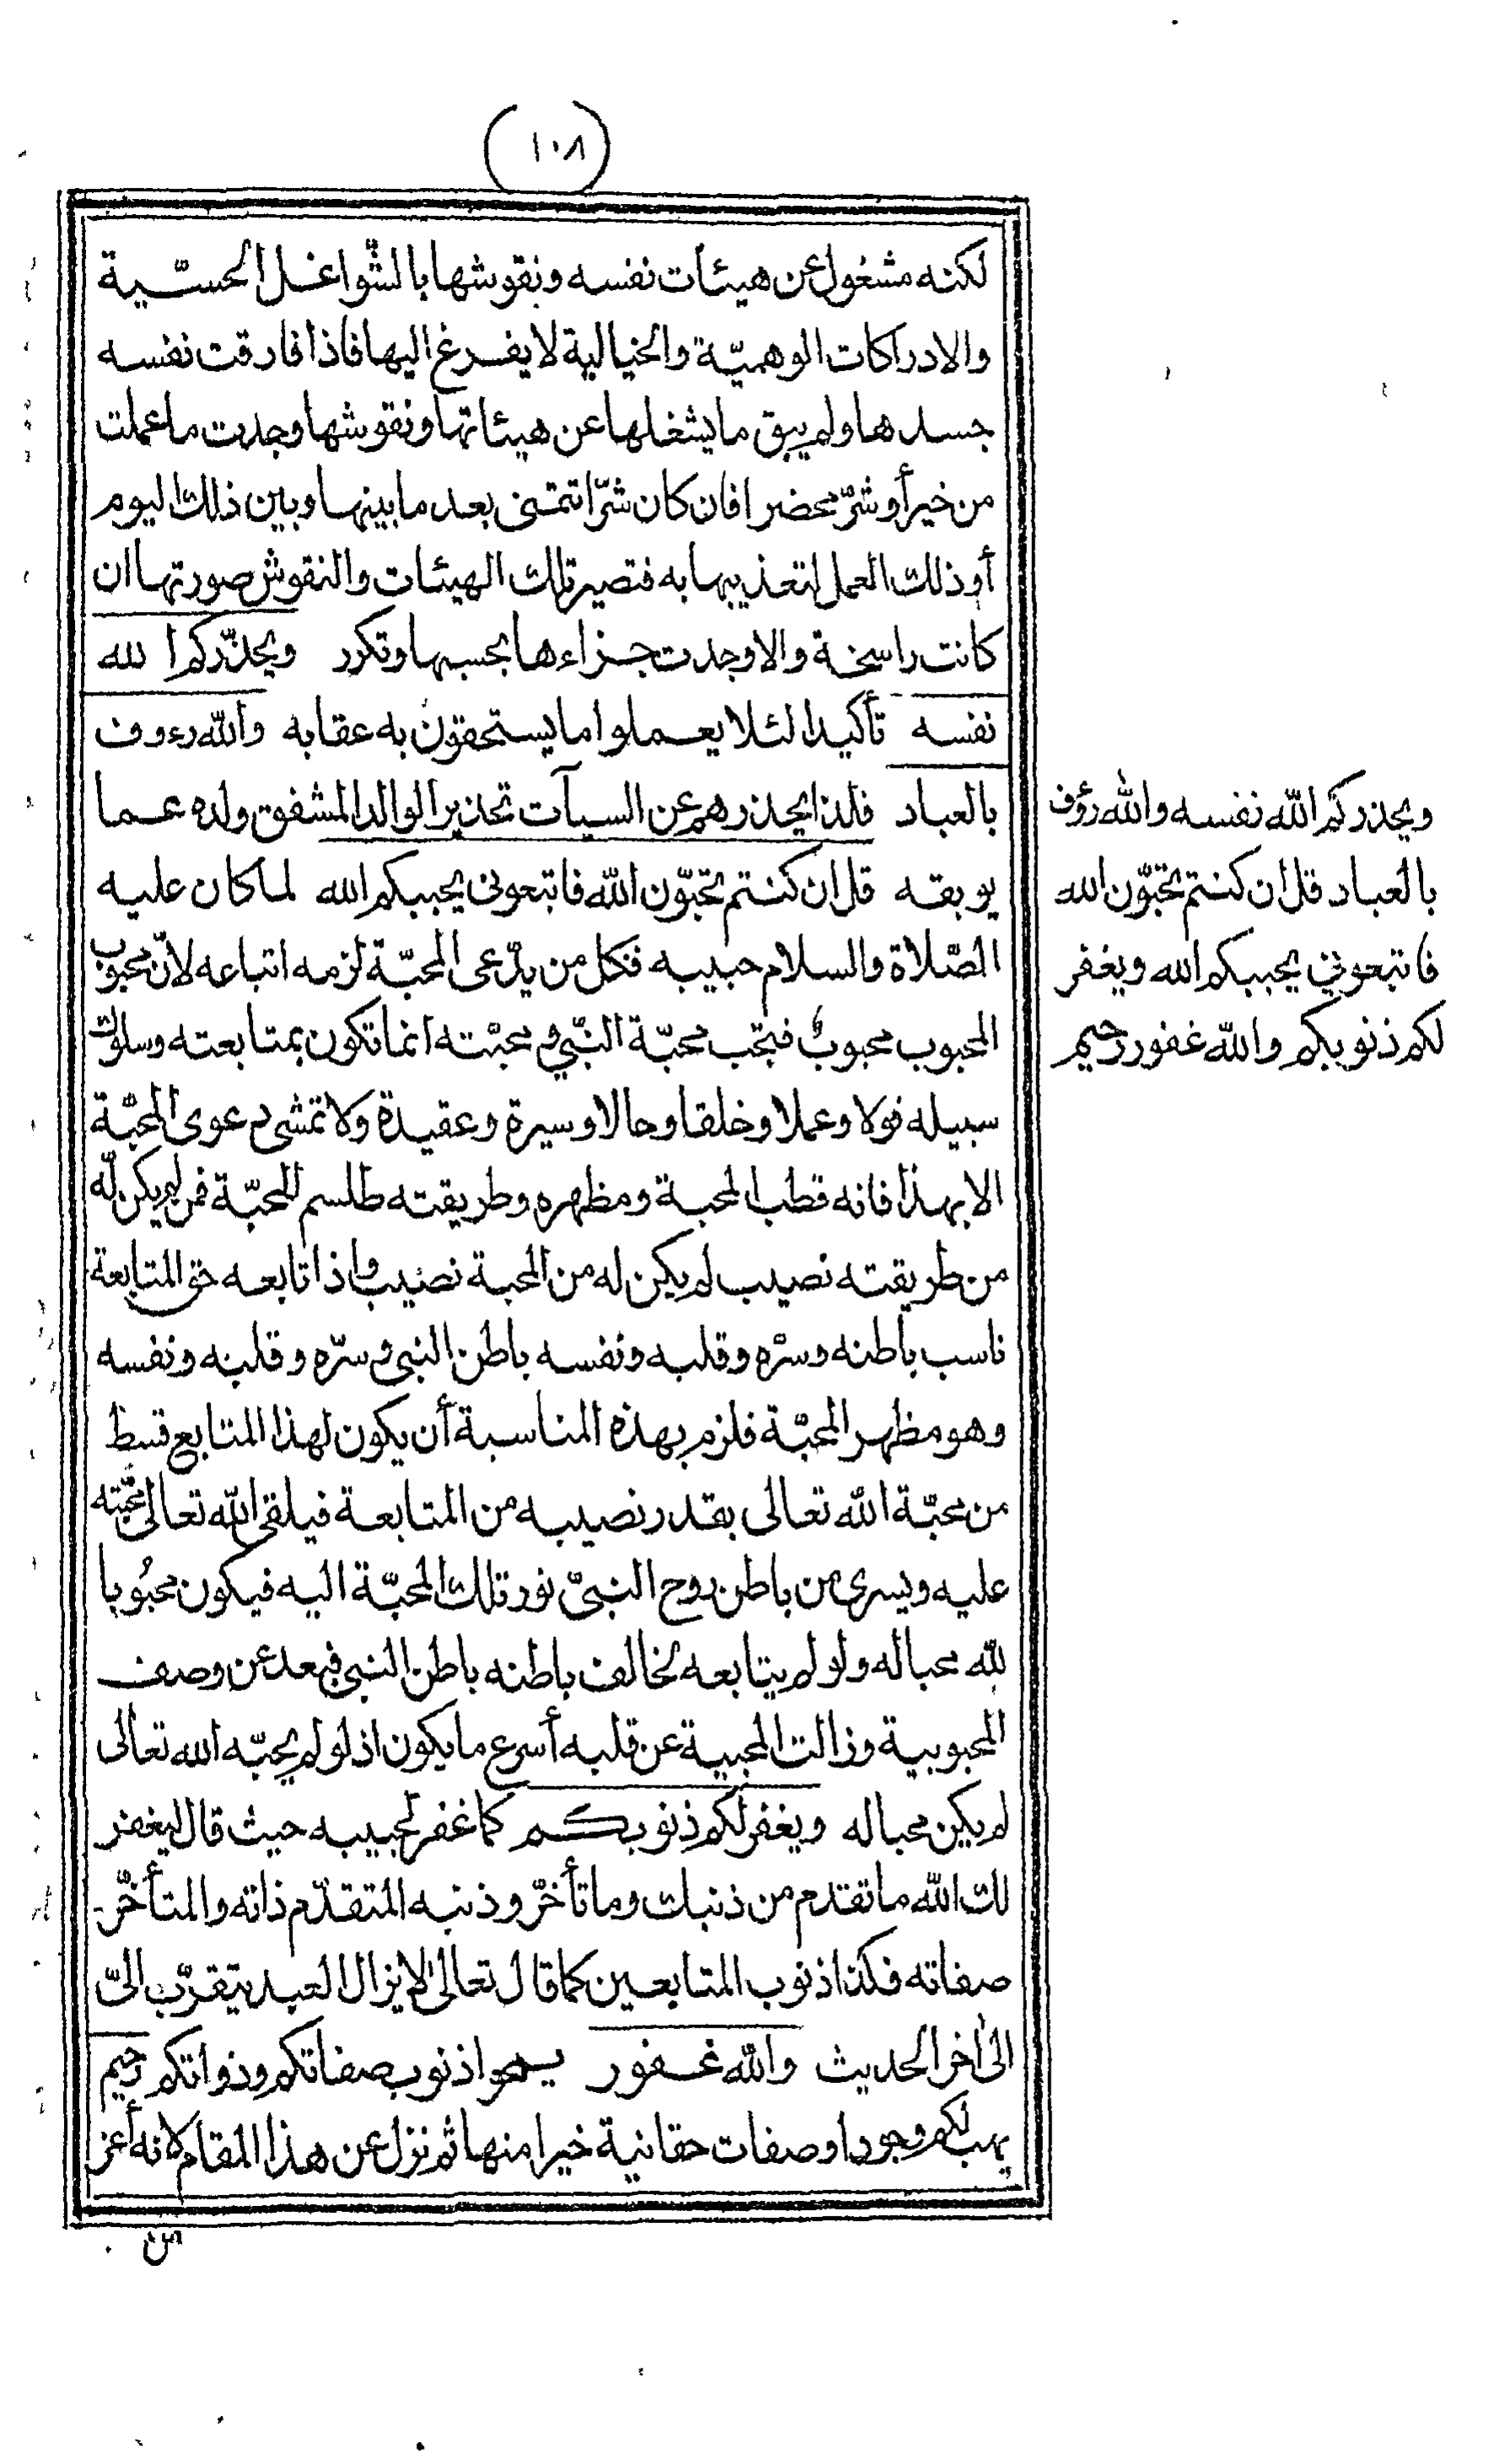 (١٠٨)
لكنه مشغول عن هيئات نفسه ونقوشها بالشّواغل الحسّية
والادراكات الوهميّة والخيالية لا يفرغ اليها فاذا فارقت نفسه
جسدها ولم يبق ما يشغلها عن هيئاتها ونقوشها وجدت ما عملت
من خير أو شرّ محضرا فان كان شرّا تتمنى بعد ما بينها وبين ذلك اليوم
أو ذلك العمل لتعذيبها به فتصير تلك الهيئات والنقوش صورتها ان
كانت راسخة والا وجدت جزاءها بحسبها وتكرر ويحذّركم الله
نفسه تأكيدا لئلا يعملوا ما يستحقون به عقابه والله رءوف
بالعباد فلذا يحذرهم عن السيآت تحذير الوالد المشفق ولده عما
يوبقه قل ان كنتم تحبّون الله فاتبعونى يحببكم الله لما كان عليه
الصّلاة والسلام حبيبه فكل من يدّعى المحبّة لزمه اتباعه لانّ محبوب
المحبوب محبوبٌ فتجب محبّة النّبي ومحبّته انما تكون بمتابعته وسلوك
سبيله قولا وعملا وخلقا وحالا وسيرة وعقيدة ولا تمشى دعوى المحبّة
الا بهذا فانه قطب المحبة ومظهره وطريقته طلسم المحبّة فمن لم يكن له
من طريقته نصيب لم يكن له من المحبة نصيب واذا تابعه حق المتابعة
ناسب باطنه وسرّه وقلبه ونفسه باطن النبى وسرّه وقلبه ونفسه
وهو مظهر المحبّة فلزم بهذه المناسبة أن يكون لهذا المتابع قسط
من محبّة الله تعالى بقدر نصيبه من المتابعة فيلقى الله تعالى محبّته
عليه ويسرى من باطن روح النبىّ نور تلك المحبّة اليه فيكون محبُوبا
لله محبا له ولو لم يتابعه لخالف باطنه باطن النبي فبعد عن وصف
المحبوبية وزالت المحبية عن قلبه أسرع ما يكون اذ لو لم يحبّه الله تعالى
لم يكن محبا له ويغفر لكم ذنوبكم كما غفر لحبيبه حيث قال ليغفر
لك الله ما تقدم من ذنبك وما تأخّر وذنبه المتقدّم ذاته والمتأخّر
صفاته فكذا ذنوب المتابعين كما قال تعالى لا يزال العبد يتقرّب الىّ
الى اخر الحديث والله غفور يمحو ذنوب صفاتكم وذواتكم رحيم
يهب لكم وجودا وصفات حقانية خيرا منها ثم نزل عن هذا المقام لانه أعز
ويحذركم الله نفسه والله رؤف
بالعباد قل ان كنتم تحبّون الله
فاتبعونى يحببكم الله ويغفر
لكم ذنوبكم والله غفور رحيم
من